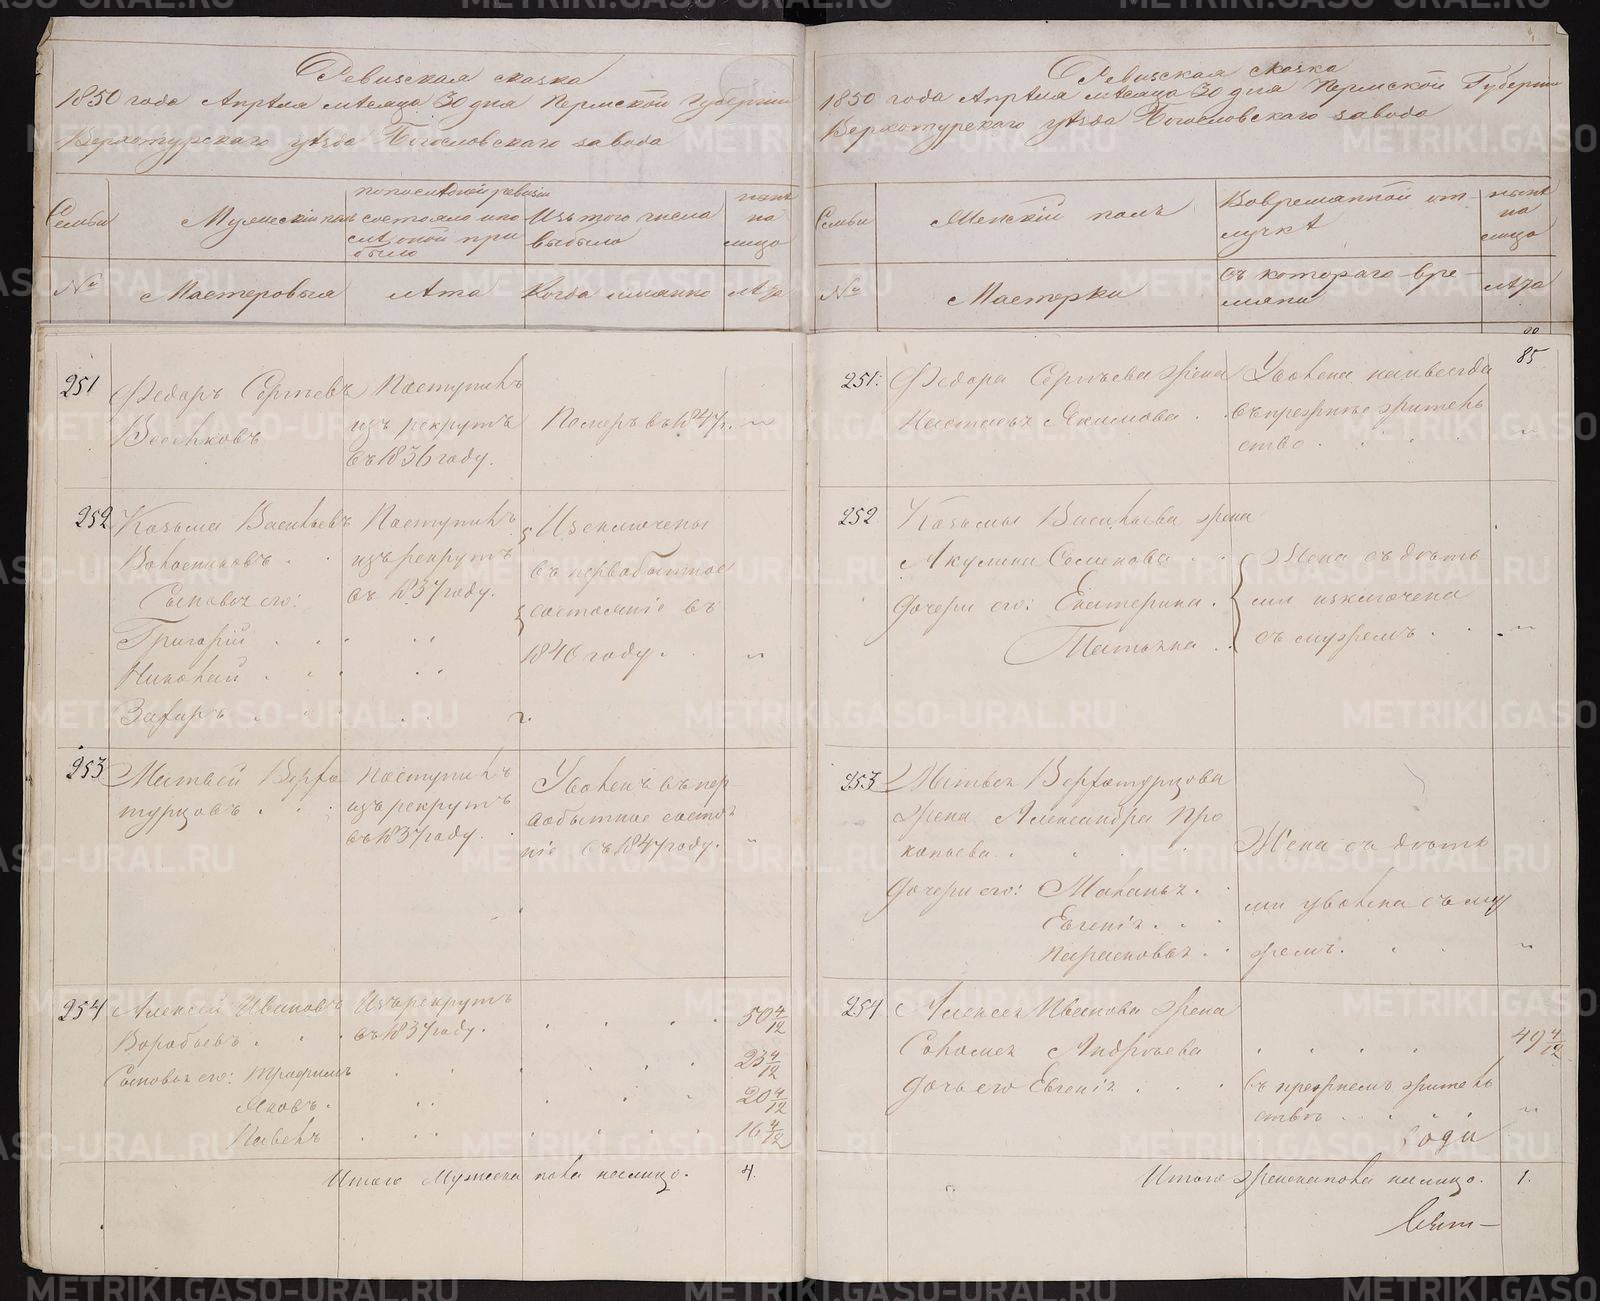 Ревизская сказка
1850 года Апрѣля мѣсяца 30 дня Пермской Губерніи
Верхотурскаго уѣзда Богословскаго завода
Семьи
Мужескій полъ
по последней ревизіи
состояло и по
сле оной при
было
Изъ того числа
выбыло
нынѣ
на
лицо
№
Мастеровыя
лѣта
Когда имянно
лѣта
251
Федоръ Сергѣевъ
Поступилъ
изъ рекрутъ
въ 1836 году.
Померъ въ 1847 г. "
252
Козьма Васильевъ
Сыновья его:
Григорій
Николай
Захаръ
Поступилъ
изъ рекрутъ
въ 1837 году.
Изключены
въ первобытное
состояніе въ
1840 году. "
253
Матвей Верхо
турцовъ
Поступилъ
изъ рекрутъ
въ 1837 году.
Уволенъ въ пер
вобытное состоя
ніе въ 1847 году. "
254
Алексѣй Ивановъ
Воробьевъ
Изъ рекрутъ
въ 1837 году.
50 4/12
Сыновья его: Трофимъ
23 4/12
Яковъ.
20 4/12
Павелъ
16 4/12
Итого Мужеска пола налицо. 4.
Ревизская сказка
1850 года Апрѣля мѣсяца 30 дня Пермской Губерніи
Верхотурскаго уѣзда Богословскаго завода
Семьи
Женскій полъ
Во временной от-
лучкѣ
нынѣ
на
лицо
№
Мастерки
Съ котораго вре-
мяни
лѣта
85
251.
Федора Сергѣева жена
Настасья Якимова
Уволена навсегда
въ прежнѣе житель
ство. "
252
Козьмы Васильева жена
Акулина Семенова
Дочери его: Екатерина.
Татьяна
Жена съ дѣть
ми изключена
съ мужемъ. "
253
Матвея Верхотурцова
жена Александра Про
копьева.
Дочери его: Маланья.
Евгенія.
Парасковья.
Жена съ дѣтьъ
ми уволена съ му
жемъ. "
254
Алексея Иванова жена
Соломея Андрѣева
49 4/12
Дочь его Евгенія
въ прежнемъ житель
ствѣ "
Итого женска пола налицо. 1.
METRIKI.GASO-URAL.RU